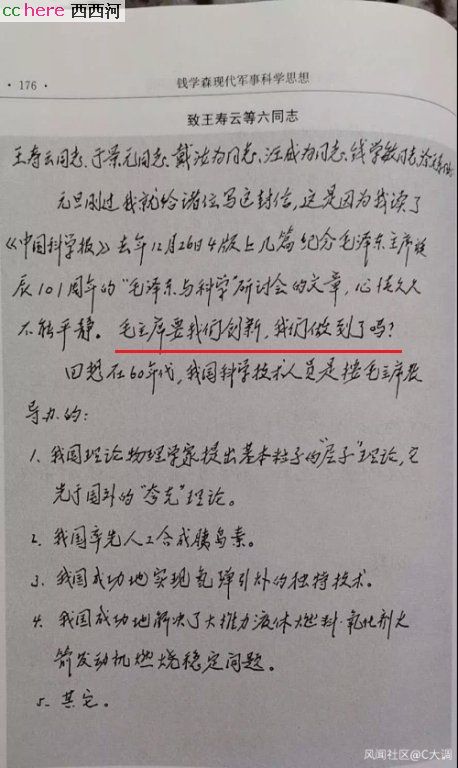 cchere 西西河
· 176 ·
钱学森现代军事科学思想
致王寿云等六同志
王寿云同志、于景元同志、戴汝为同志、汪成为同志、钱学敏同志、涂元季同
元旦刚过我就给诸位写这封信，这是因为我读了
《中国科学报》去年12月26日4版上几篇纪念毛泽东主席诞
辰101周年的“毛泽东与科学”研讨会的文章，心情久久
不能平静。毛主席要我们创新，我们做到了吗？
回想在60年代，我国科学技术人员是按毛主席教
导办的：
1. 我国理论物理学家提出基本粒子的“层子”理论，它
先于国外的“夸克”理论。
2. 我国率先人工合成胰岛素。
3. 我国成功地实现氢弹引爆的独特技术。
4. 我国成功地解决了大推力液体燃料·氧化剂火
箭发动机燃烧稳定问题。
5. 其它。
风闻社区@C大调